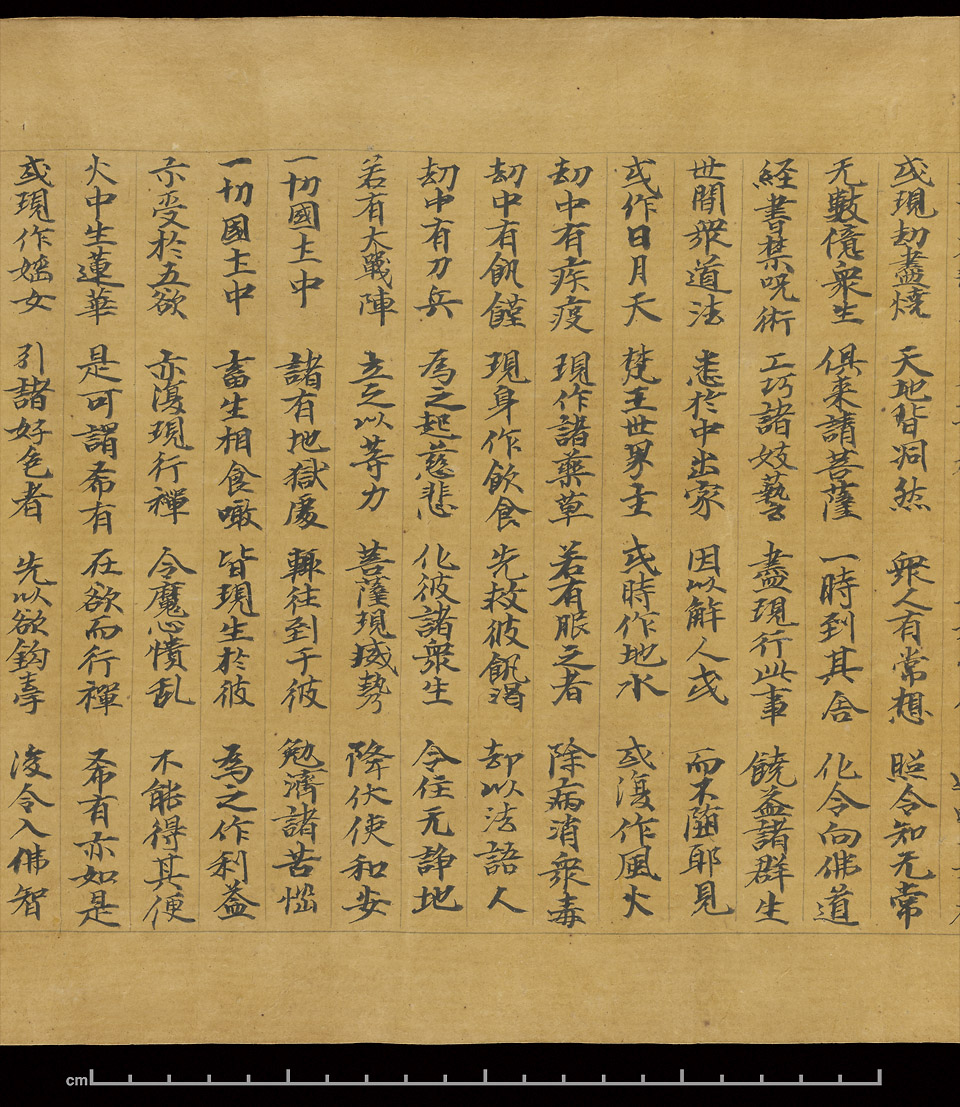 或現劫盡燒 天地皆烔然 衆人有常想 照令知无常
无數億衆生 俱来請菩薩 一時到其舍 化令向佛道
経書禁呪術 工巧諸妓藝 盡現行此事 饒益諸群生
世間衆道法 悉於中出家 因以解人或 而不随耶見
或作日月天 梵王世界主 或時作地水 或復作風火
劫中有疾疫 現作諸藥草 若有服之者 除病消衆毒
劫中有飢饉 現身作飲食 先救彼飢渴 却以法語人
劫中有刀兵 為之起慈悲 化彼諸衆生 令住无諍地
若有大戰陣 立之以等力 菩薩現威勢 降伏使和安
一切國土中 諸有地獄處 輒往到于彼 勉濟諸苦惱
一切國土中 畜生相食噉 皆現生於彼 為之作利益
示受於五欲 亦復現行禪 令魔心憒乱 不能得其便
火中生蓮華 是可謂希有 在欲而行禪 希有亦如是
或現作婬女 引諸好色者 先以欲鈎牽 後令入佛智